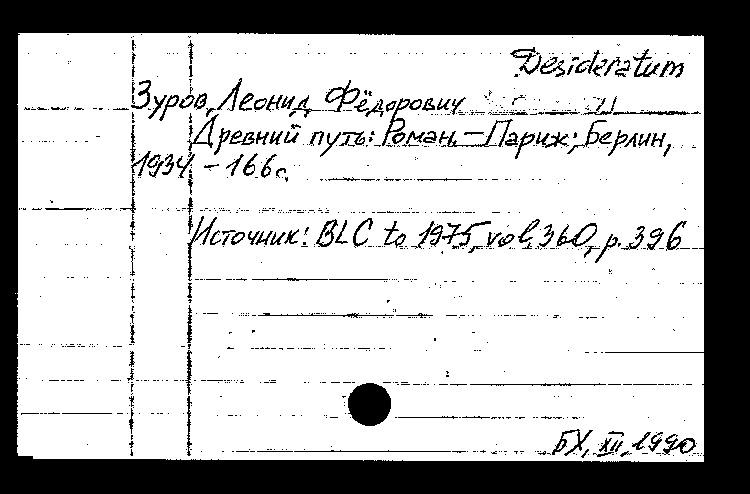 Desideratum
Зуров, Леонид Фёдорович
Древний путь: Роман. – Париж; Берлин,
1934 – 166 с.
Источник: BLC to 1975, vol. 360, p. 396
БХ, XII, 1990